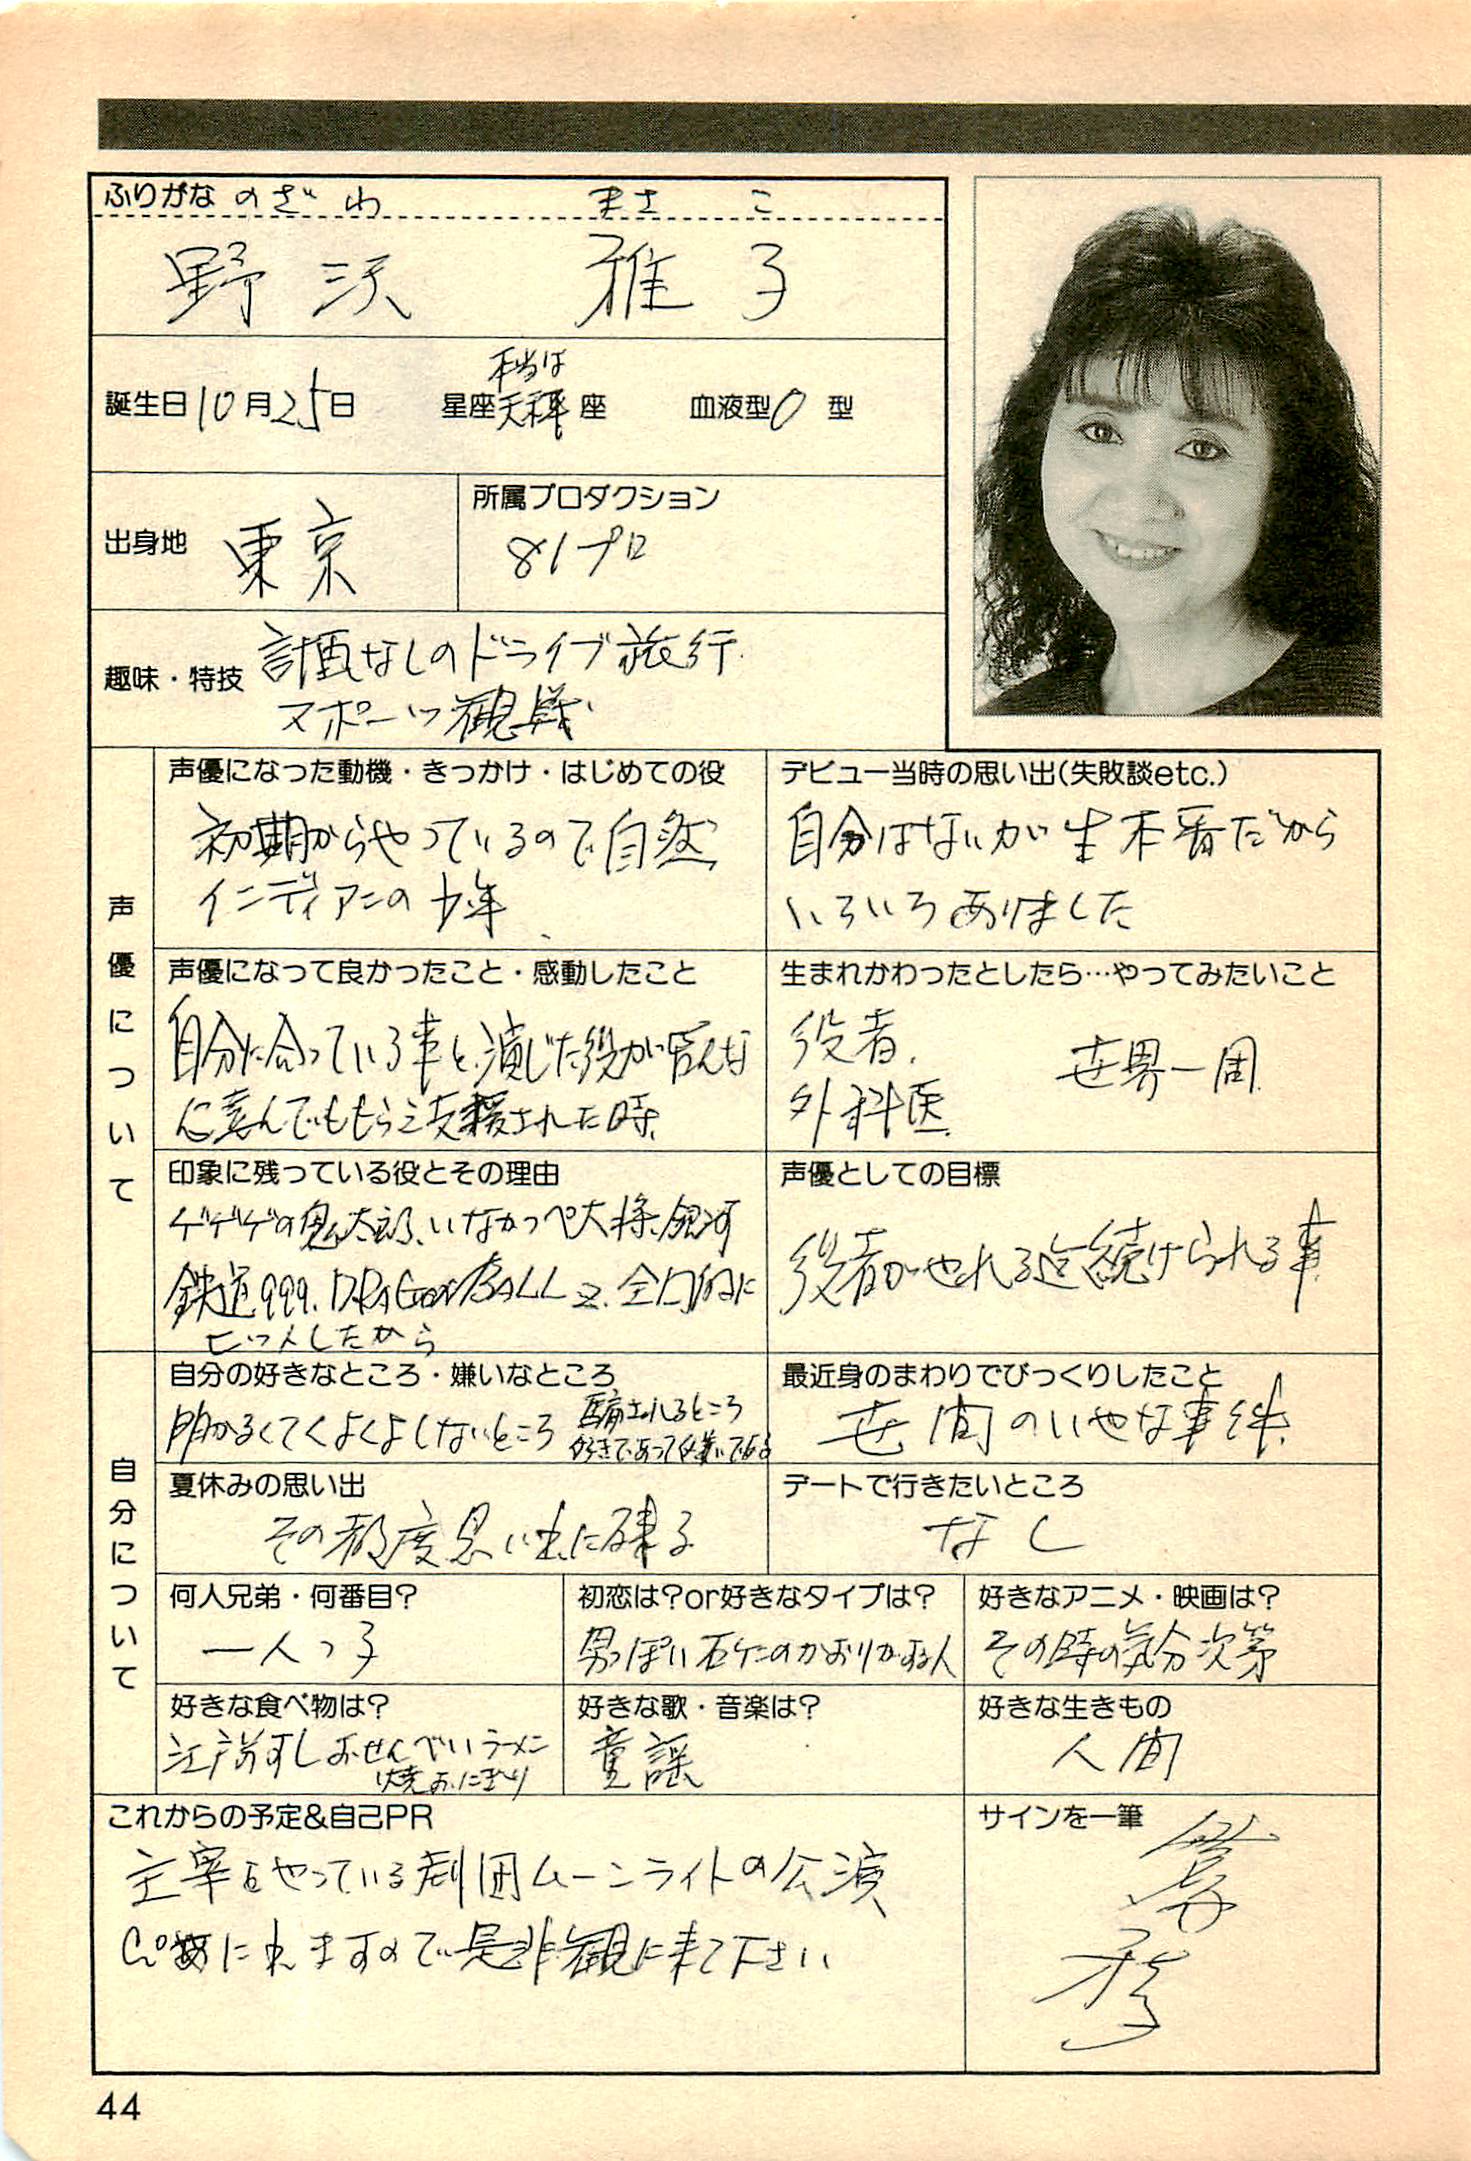 ふりがな のざわ まさこ
野沢 雅子
本当は
誕生日10月25日 星座天秤座 血液型O型
出身地 東京
所属プロダクション
81プロ
趣味・特技 計画なしのドライブ旅行
スポーツ観戦
声優について
声優になった動機・きっかけ・はじめての役
初期からやっているので自然
インディアンの少年
デビュー当時の思い出(失敗談etc.)
自分はないが生本番だから
いろいろありました
声優になって良かったこと・感動したこと
自分に合っている事と、演じた役が皆んな
に喜んでもらえ支援された時
生まれかわったとしたら…やってみたいこと
役者 世界一周
外科医
印象に残っている役とその理由
ゲゲゲの鬼太郎、いなかっぺ大将、銀河
鉄道999、DRAGON BALL Z、全国的に
ヒットしたから
声優としての目標
役者がやれる迄続けられる事
自分について
自分の好きなところ・嫌いなところ
明かるくてくよくよしないところ
騙されるところ
好きであって嫌いである
最近身のまわりでびっくりしたこと
世間のいやな事件
夏休みの思い出
その都度思い出に残る
デートで行きたいところ
なし
何人兄弟・何番目?
一人っ子
初恋は?or好きなタイプは?
男っぽい石けんのかおりがする人
好きなアニメ・映画は?
その時の気分次第
好きな食べ物は?
江戸前すし おせんべい ラーメン
焼おにぎり
好きな歌・音楽は?
童謡
好きな生きもの
人間
これからの予定&自己PR
主宰をやっている劇団ムーンライトの公演
に来ますので是非観に来て下さい
サインを一筆
44